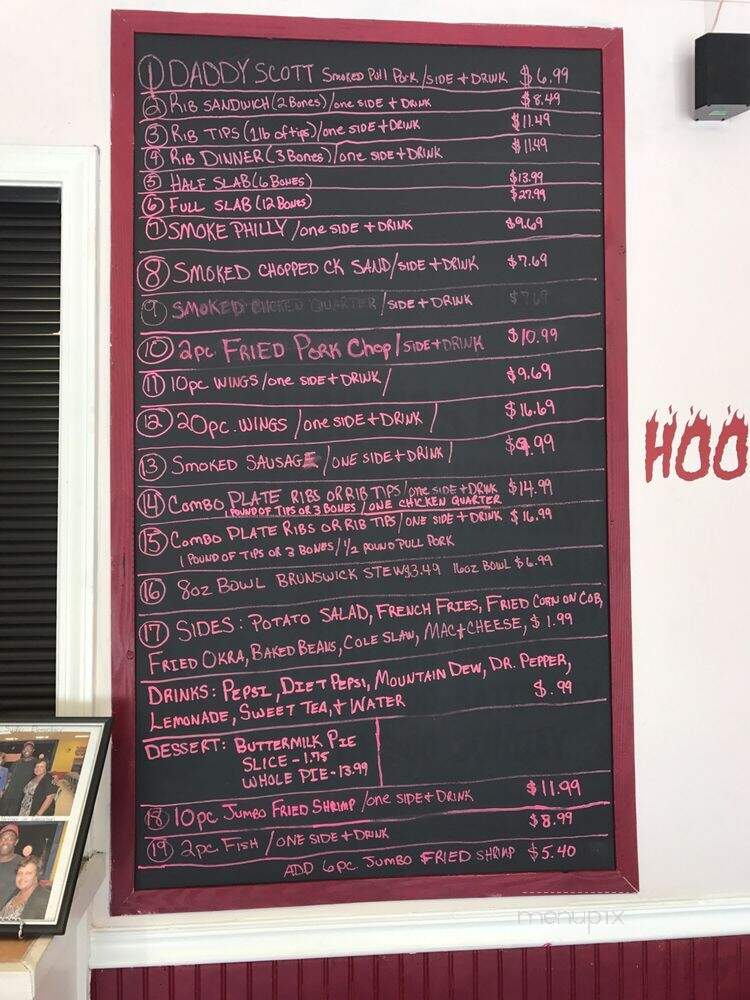 1 DADDY SCOTT SMOKED PULL PORK/SIDE + DRINK $6.99
2 RIB SANDWICH (2 BONES)/ONE SIDE + DRINK $8.49
3 RIB TIPS (1lb of tips)/ONE SIDE + DRINK $11.49
4 RIB DINNER (3 BONES)/ONE SIDE + DRINK $11.49
5 HALF SLAB (6 BONES) $13.99
6 FULL SLAB (12 BONES) $27.99
7 SMOKE PHILLY /ONE SIDE + DRINK $9.69
8 SMOKED CHOPPED CK SAND/SIDE + DRINK $7.69
9 SMOKED CHICKEN QUARTER/SIDE + DRINK $7.69
10 2pc FRIED PORK CHOP/SIDE + DRINK $10.99
11 10pc WINGS/ONE SIDE + DRINK/ $9.69
12 20pc. WINGS /ONE SIDE + DRINK/ $16.69
13 SMOKED SAUSAGE/ONE SIDE + DRINK/ $9.99
14 COMBO PLATE RIBS OR RIB TIPS/ONE SIDE + DRINK $14.99
1 POUND OF TIPS OR 3 BONES/ONE CHICKEN QUARTER
15 COMBO PLATE RIBS OR RIB TIPS/ONE SIDE + DRINK $16.99
1 POUND OF TIPS OR 3 BONES/1/2 POUND PULL PORK
16 8oz BOWL BRUNSWICK STEW $3.49 16oz BOWL $6.99
17 SIDES: POTATO SALAD, FRENCH FRIES, FRIED CORN ON COB,
FRIED OKRA, BAKED BEANS, COLE SLAW, MAC + CHEESE, $1.99
DRINKS: PEPSI, DIET PEPSI, MOUNTAIN DEW, DR. PEPPER,
LEMONADE, SWEET TEA, + WATER $.99
DESSERT: BUTTERMILK PIE
SLICE - 1.75
WHOLE PIE - 13.99
18 10pc JUMBO FRIED SHRIMP/ONE SIDE + DRINK $11.99
19 2pc FISH /ONE SIDE + DRINK $8.99
ADD 6pc JUMBO FRIED SHRIMP $5.40
HOO
menupix